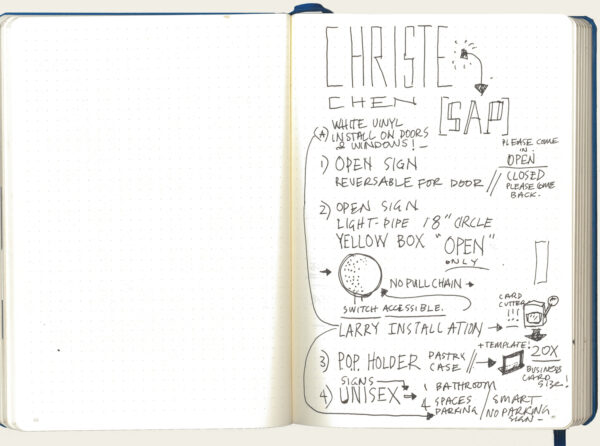 CHRISTE
CHEN
[SAP]
A) WHITE VINYL
INSTALL ON DOORS
& WINDOWS!
1) OPEN SIGN
REVERSABLE FOR DOOR //
PLEASE COME
IN
OPEN
CLOSED
PLEASE COME
BACK.
2) OPEN SIGN
LIGHT-PIPE 18" CIRCLE
YELLOW BOX "OPEN"
ONLY
NO PULL CHAIN
SWITCH ACCESSIBLE.
LARRY INSTALLATION
CARD
CUTTER
!!!
3) POP. HOLDER
PASTRY
CASE //
+TEMPLATE!
20X
BUSINESS
CARD
SIZE!
4) SIGNS
UNISEX
1 BATHROOM
4 SPACES
PARKING
/ SMART
NO PARKING
SIGN